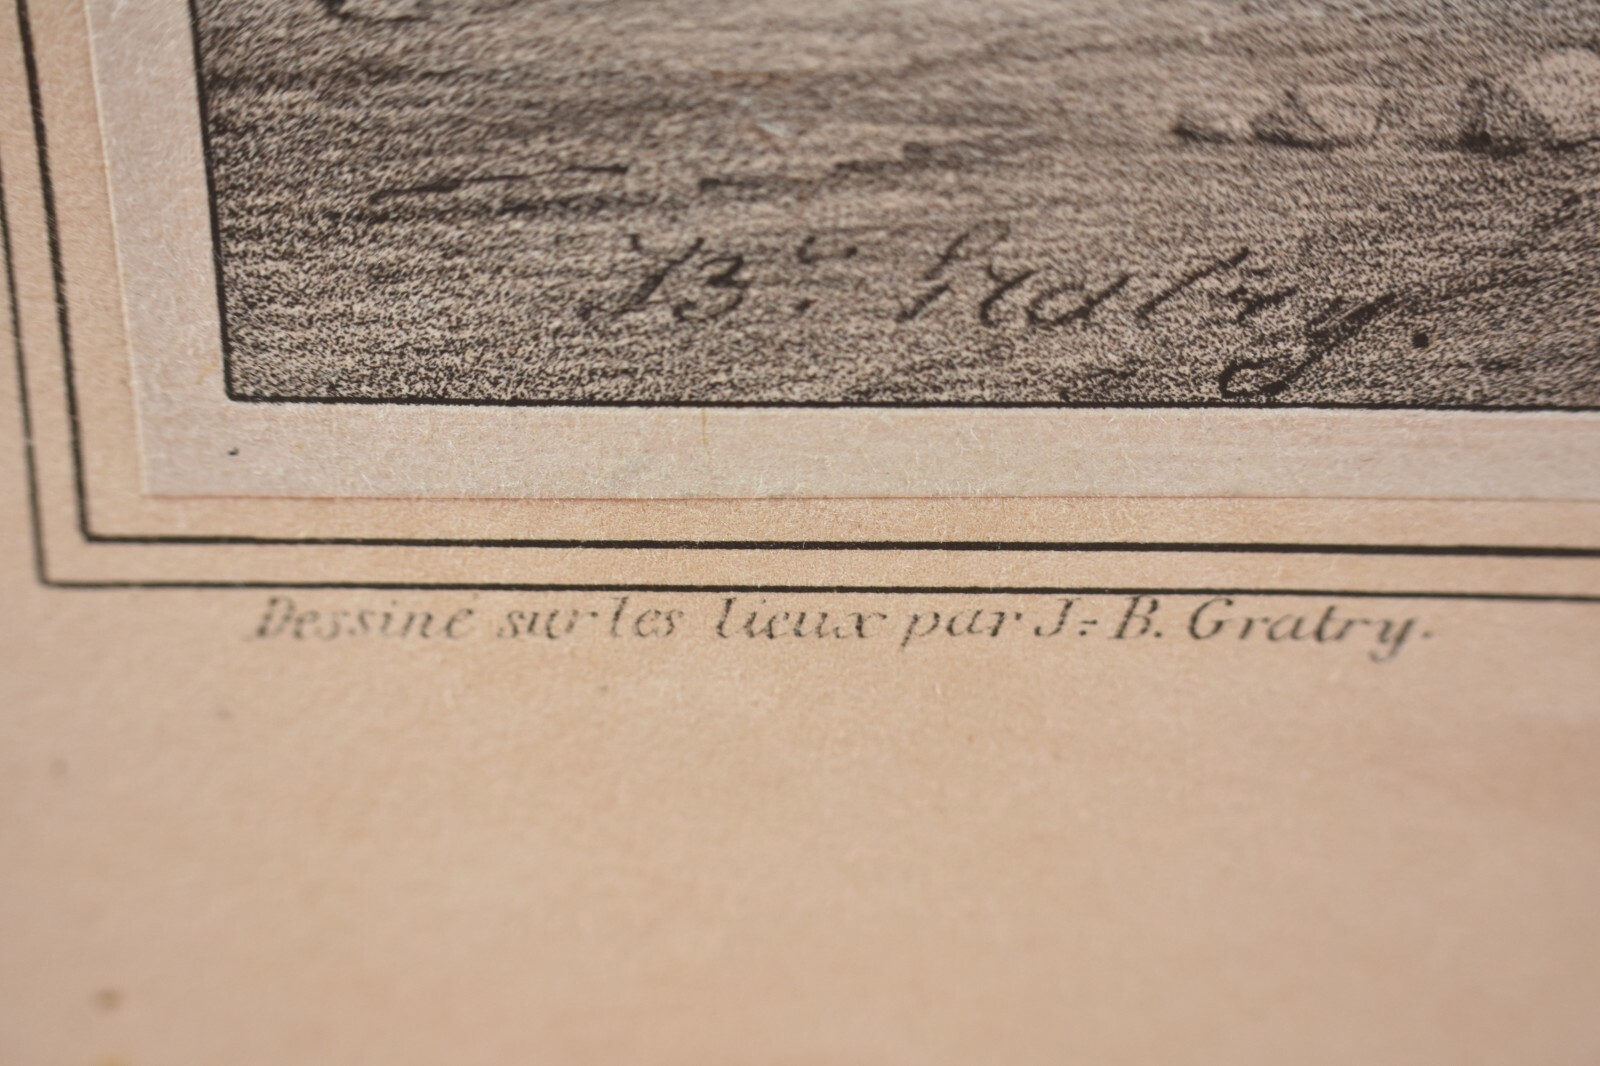 Bte Gratry.
Dessiné sur les lieux par J.-B. Gratry.